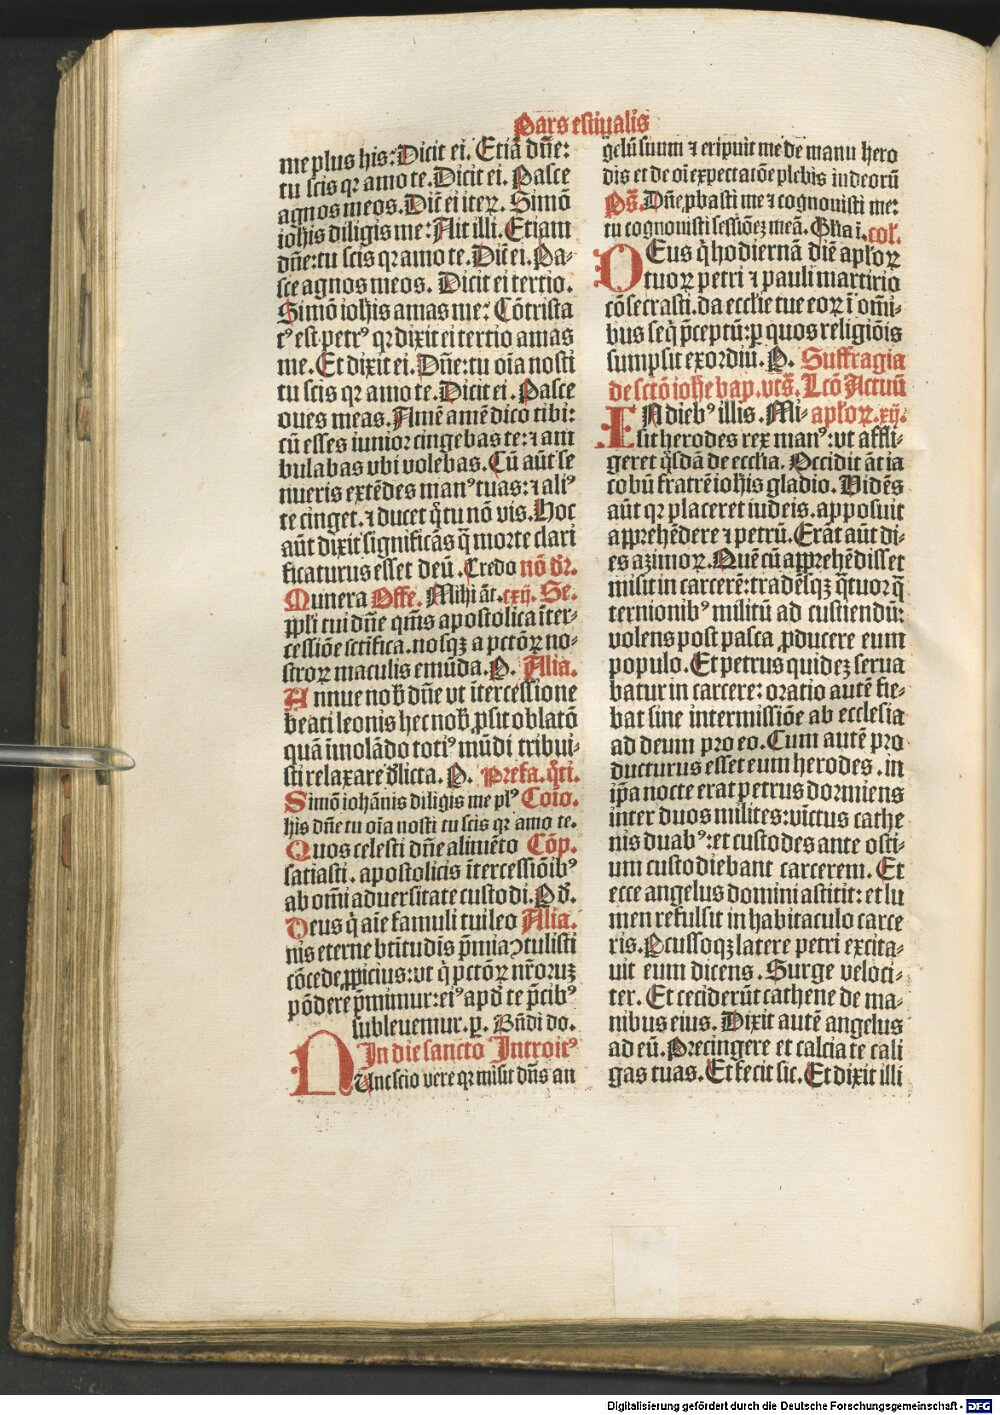 Pars estiualis
me plus his: Dicit ei. Etiā dn̄e:
tu scis qꝛ amo te. Dicit ei. Pasce
agnos meos. Dic̄ ei iteꝝ. Simō
ioh̄is diligis me: Ait illi. Etiam
dn̄e: tu scis qꝛ amo te. Dic̄ ei. Pa-
sce agnos meos. Dicit ei tertio.
Simō ioh̄is amas me: Cōtrista
tꝰ est petrꝰ qꝛ dixit ei tertio amas
me. Et dixit ei. Dn̄e: tu oīa nosti
tu scis qꝛ amo te. Dicit ei. Pasce
oues meas. Amē amē dico tibi:
cū esses iunior cingebas te: ⁊ am
bulabas vbi volebas. Cū aūt se
nueris extēdes manꝰ tuas: ⁊ aliꝰ
te cinget. ⁊ ducet q̊ tu nō vis. Hoc
aūt dixit significās q̄ morte clari
ficaturus esset deū. Credo nō dr̄.
Munera Offe. Mihi āt. cxij. Se.
ppl̄i tui dn̄e qm̄s apostolica īter-
cessiōe sctīfica. nosqꝫ a pctōꝝ no-
stroꝝ maculis emūda. P. Alia.
Annue nob̄ dn̄e vt ītercessione
beati leonis hec nob̄ ꝓsit oblatō
quā īmolādo totiꝰ mūdi tribui-
sti relaxare d̄licta. P. Prefa. q̊ti.
Simō iohānis diligis me plꝰ Coīo.
his dn̄e tu oīa nosti tu scis qꝛ amo te.
Quos celesti dn̄e alimēto Cōp.
satiasti. apostolicis ītercessiōibꝰ
ab om̄i aduersitate custodi. P d̄.
Deus q̊ aīe famuli tui leo Alia.
nis eterne btītudīs p̄mia ꝯtulisti
cōcede ꝓpicius: vt q̊ pctōꝝ nr̄oruꝫ
pōdere p̄mimur: eiꝰ apd̕ te p̄cibꝰ
subleuemur. p. Bn̄di do.
In die sancto Introitꝰ
NUnc scio vere qꝛ misit dn̄s an
gelū suum ⁊ eripuit me de manu hero
dis et de oī expectatōe plebis iudeorū
Ps̄. Dn̄e ꝓbasti me ⁊ cognouisti me:
tu cognouisti sessiōeꝫ meā. Gl̄ia ī. col̄.
DEus q̊ hodiernā diē apl̄oꝝ
tuoꝝ petri ⁊ pauli martirio
cōsecrasti. da eccl̄ie tue eoꝝ ī om̄i-
bus seq̊ p̄ceptū: ꝑ quos religiōis
sumpsit exordiū. P. Suffragia
de sctō ioh̄e bap. vts̄. Lcō Actuū
IN diebꝰ illis. Mi- apl̄oꝝ. xij.
sit herodes rex manꝰ: vt affli-
geret q̊sdā de eccl̄ia. Occidit āt ia
cobū fratrē ioh̄is gladio. Vidēs
aūt qꝛ placeret iudeis. apposuit
apprehēdere ⁊ petrū. Erāt aūt di-
es azimoꝝ. Quē cū apprehēdisset
misit in carcerē: tradēsqꝫ q̄tuor q̄
ternionibꝰ militū ad custiendū:
volens post pasca ꝓducere eum
populo. Et petrus quideꝫ serua
batur in carcere: oratio autē fie-
bat sine intermissiōe ab ecclesia
ad deum pro eo. Cum autē pro
ducturus esset eum herodes. in
ip̄a nocte erat petrus dormiens
inter duos milites: vīctus cathe
nis duabꝰ: et custodes ante osti-
um custodiebant carcerem. Et
ecce angelus domini astitit: et lu
men refulsit in habitaculo carce
ris. Pcussoqꝫ latere petri excita-
uit eum dicens. Surge veloci-
ter. Et ceciderūt cathene de ma-
nibus eius. Dixit autē angelus
ad eū. Precingere et calcia te cali
gas tuas. Et fecit sic. Et dixit illi
Digitalisierung gefördert durch die Deutsche Forschungsgemeinschaft - DFG